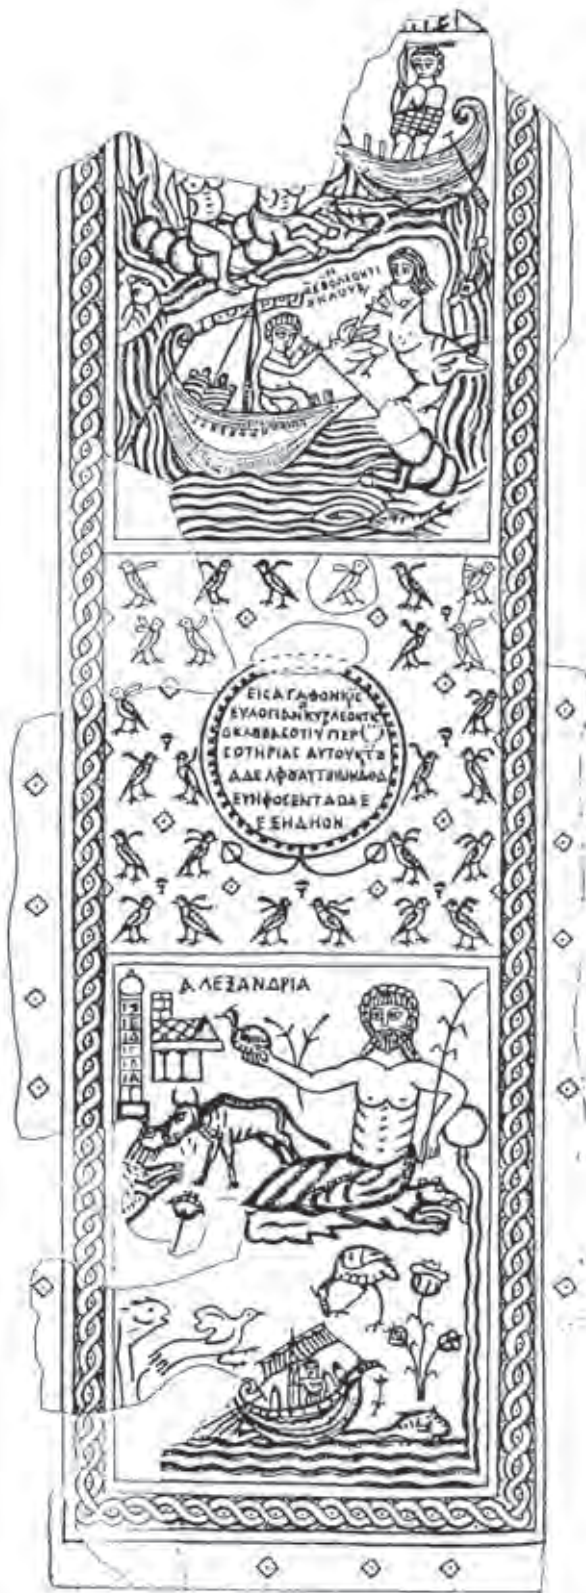 ΛΕΟΝΤΙ
ΚΛΟΥΒ
ΕΙC ΑΓΑΘΟΝ ΚΥC
ΕΥΛΟΓΙΑΝ ΚΥΡ ΛΕΟΝΤΙC
Ο ΚΛΟΥΒΑC ΟΤΙ ΥΠΕΡ
CΟΤΗΡΙΑC ΑΥΤΟΥ Κ ΤΟΥ
ΑΔΕΛΦΟΥ ΑΥΤΟΥ ΙΩΝΑΘΑ
ΕΨΗΦΟCΕΝ ΤΑ ΩΔΕ
ΕΞ ΗΔΗΟΝ
ΑΛΕΞΑΝΔΡΙΑ